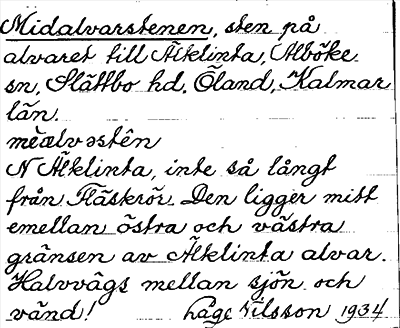 Midalvarstenen, sten på
alvaret till Äleklinta, Alböke
sn, Slättbo hd, Öland, Kalmar
län.
mèalvəstên
N Äleklinta, inte så långt
från Fläskrör. Den ligger mitt
emellan östra och västra
gränsen av Äleklinta alvar.
Halvvägs mellan sjön och
vänd! Låge Nilsson 1934